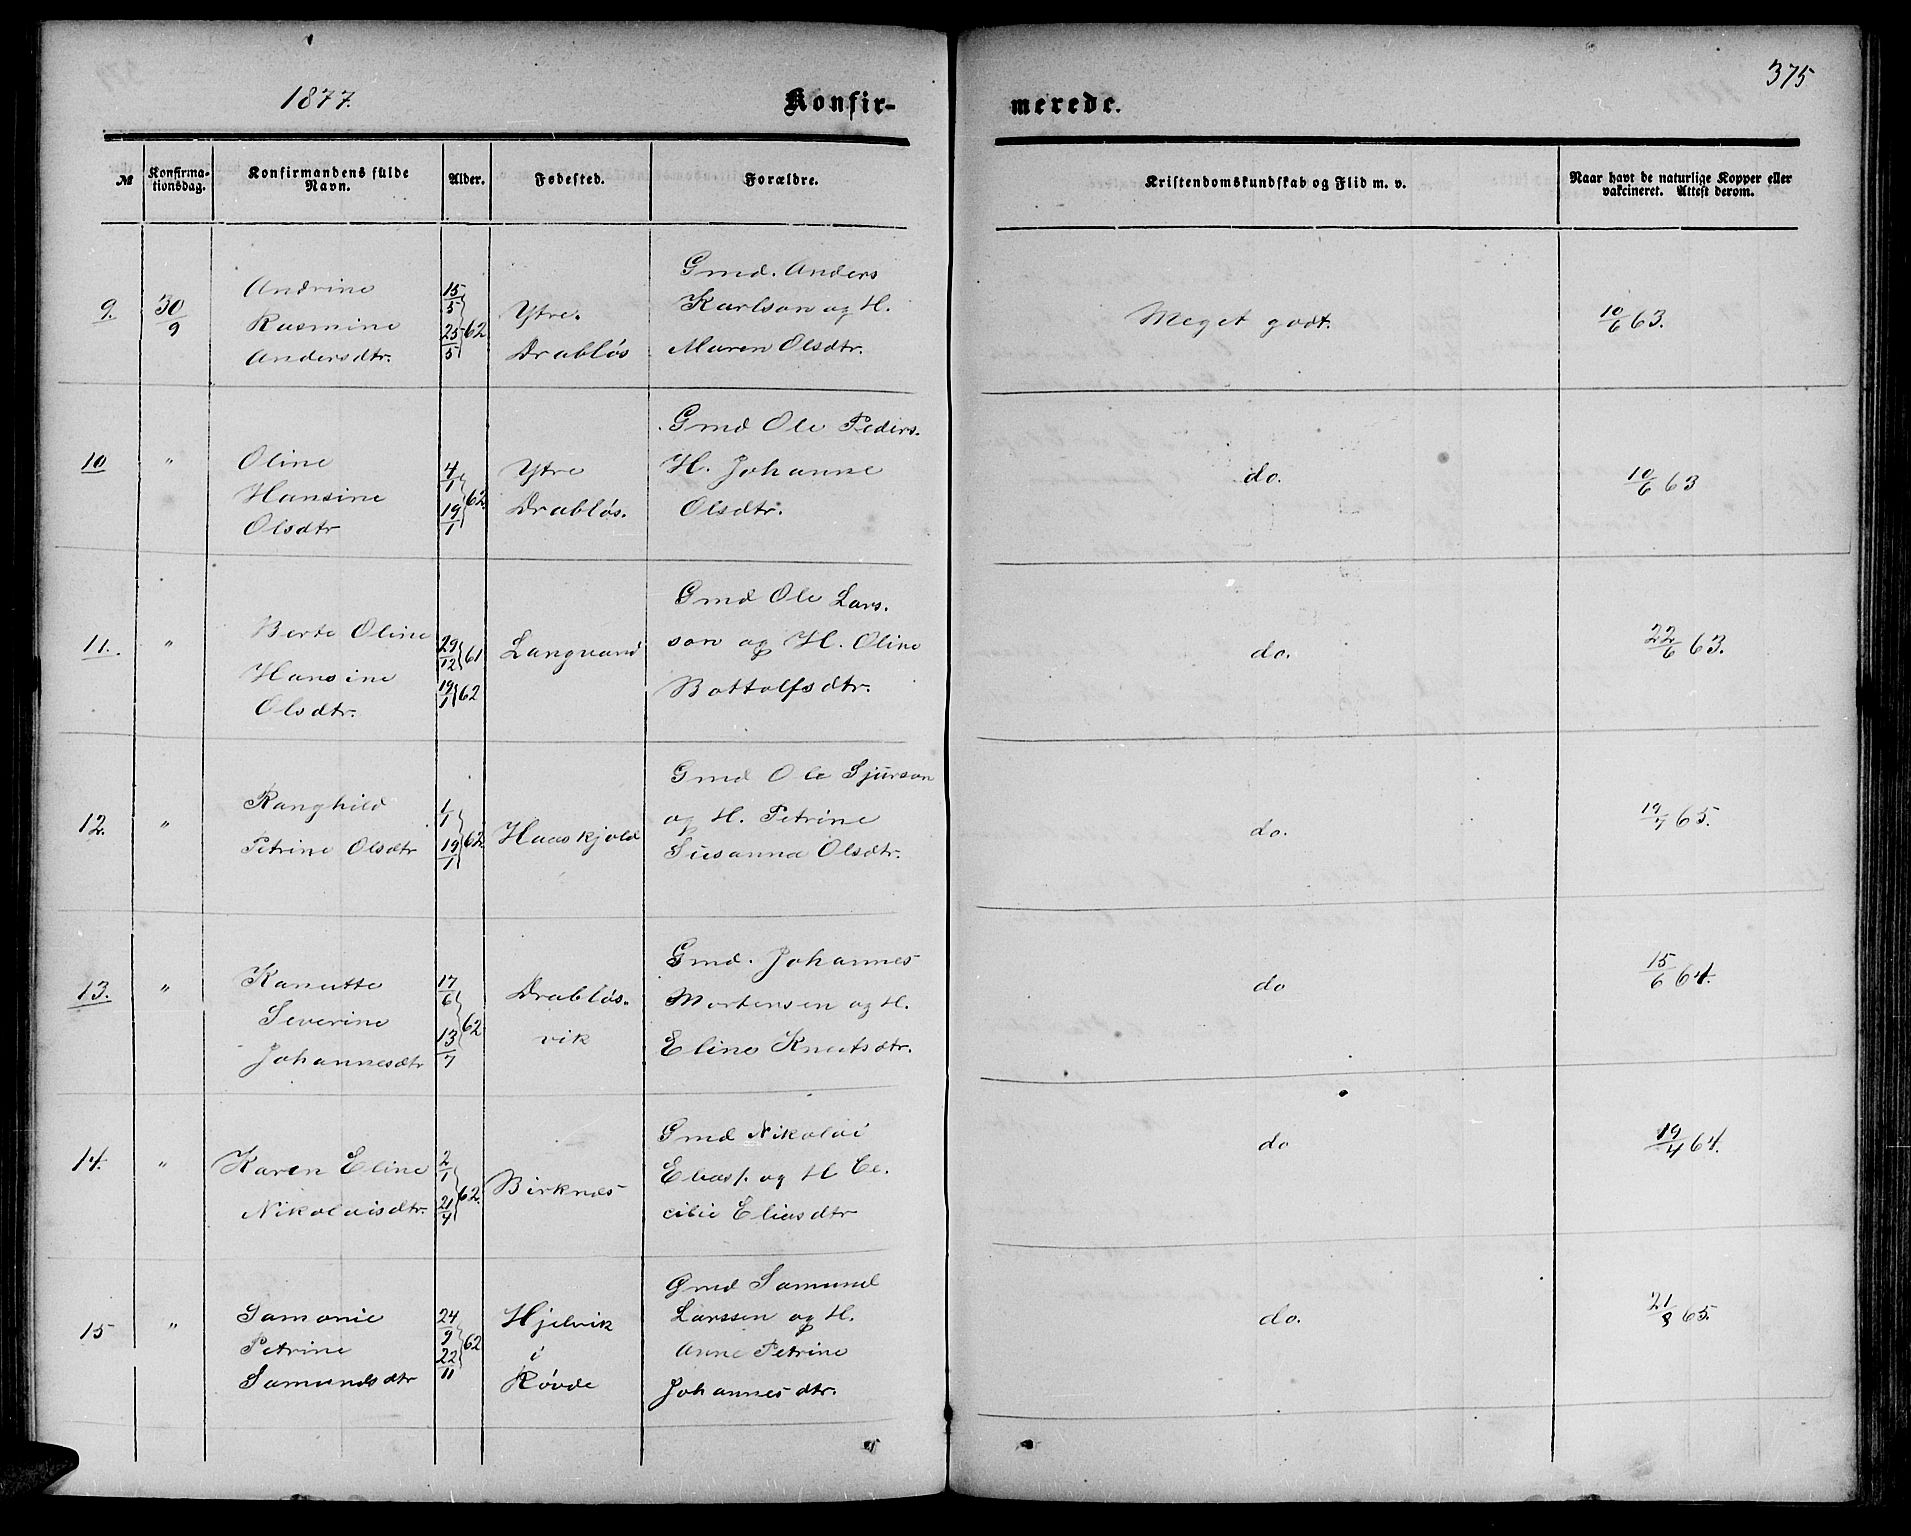 375
1877.
Konfir-
merede.
№
Konfirma-
tionsdag.
Konfirmandens fulde
Navn.
Alder.
Fødested.
Forældre.
Kristendomskundskab og Flid m. v.
Naar havt de naturlige Kopper eller
vakcineret. Attest derom.
9. 30/9 Andrine Rasmine Andersdtr. 15/5 25/5 62 Ytre. Drabløs Gmd. Anders Karlson og H. Maren Olsdtr. Meget godt. 10/6 63.
10 " Oline Hansine Olsdtr 4/1 19/1 62. Ytre Drabløs. Gmd Ole Peders. H. Johanne Olsdtr. do. 10/6 63
11. " Berte Oline Hansine Olsdtr. 29/12 61 19/1 62 Langvand Gmd Ole Larsson og H. Oline Bottolfsdtr. do. 22/6 63.
12. " Ranghild Petrine Olsdtr 1/1 19/1 62. Haaskjold Gmd Ole Sjurson og H. Petrine Susanna Olsdtr. do. 65.
13. " Kanutte Severine Johannesdtr 17/6 13/7 62 Drabløs. vik Gmd. Johannes Mortensen og H. Eline Knutsdtr. do 15/6 64.
14. " Karen Eline Nikolaisdtr. 2/1 21/4 62. Birknes Gmd Nikolai Elias/. og H Ce. cilie Eliasdtr do 19/4 64.
15 " Samonie Petrine Samundsdtr 24/9 22/11 62 Hjelvik i Røvde Gmd Samund Larssen og H. Anne Petrine Johannesdtr. do. 21/8 65.